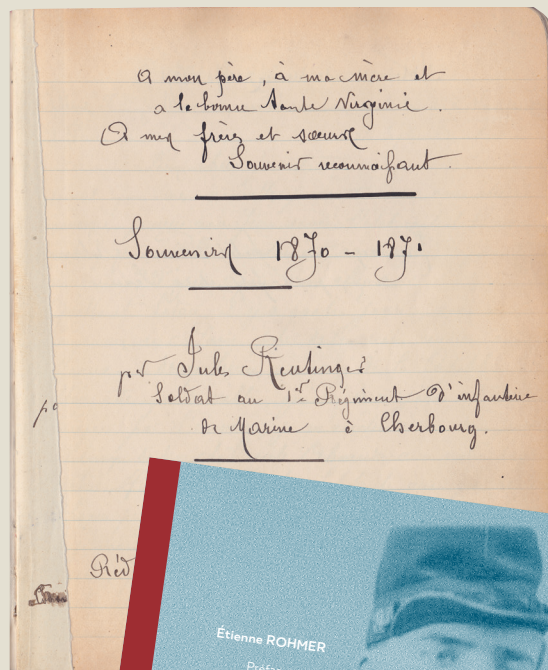 A mon père, à ma mère et
a la bonne tante Virginie.
A mes frères et sœurs
Souvenir reconnaissant
Souvenirs 1870 - 1871
par Jules Reutinger
Soldat au 1er Régiment d'infanterie
de Marine à Cherbourg.
Réd
Étienne ROHMER